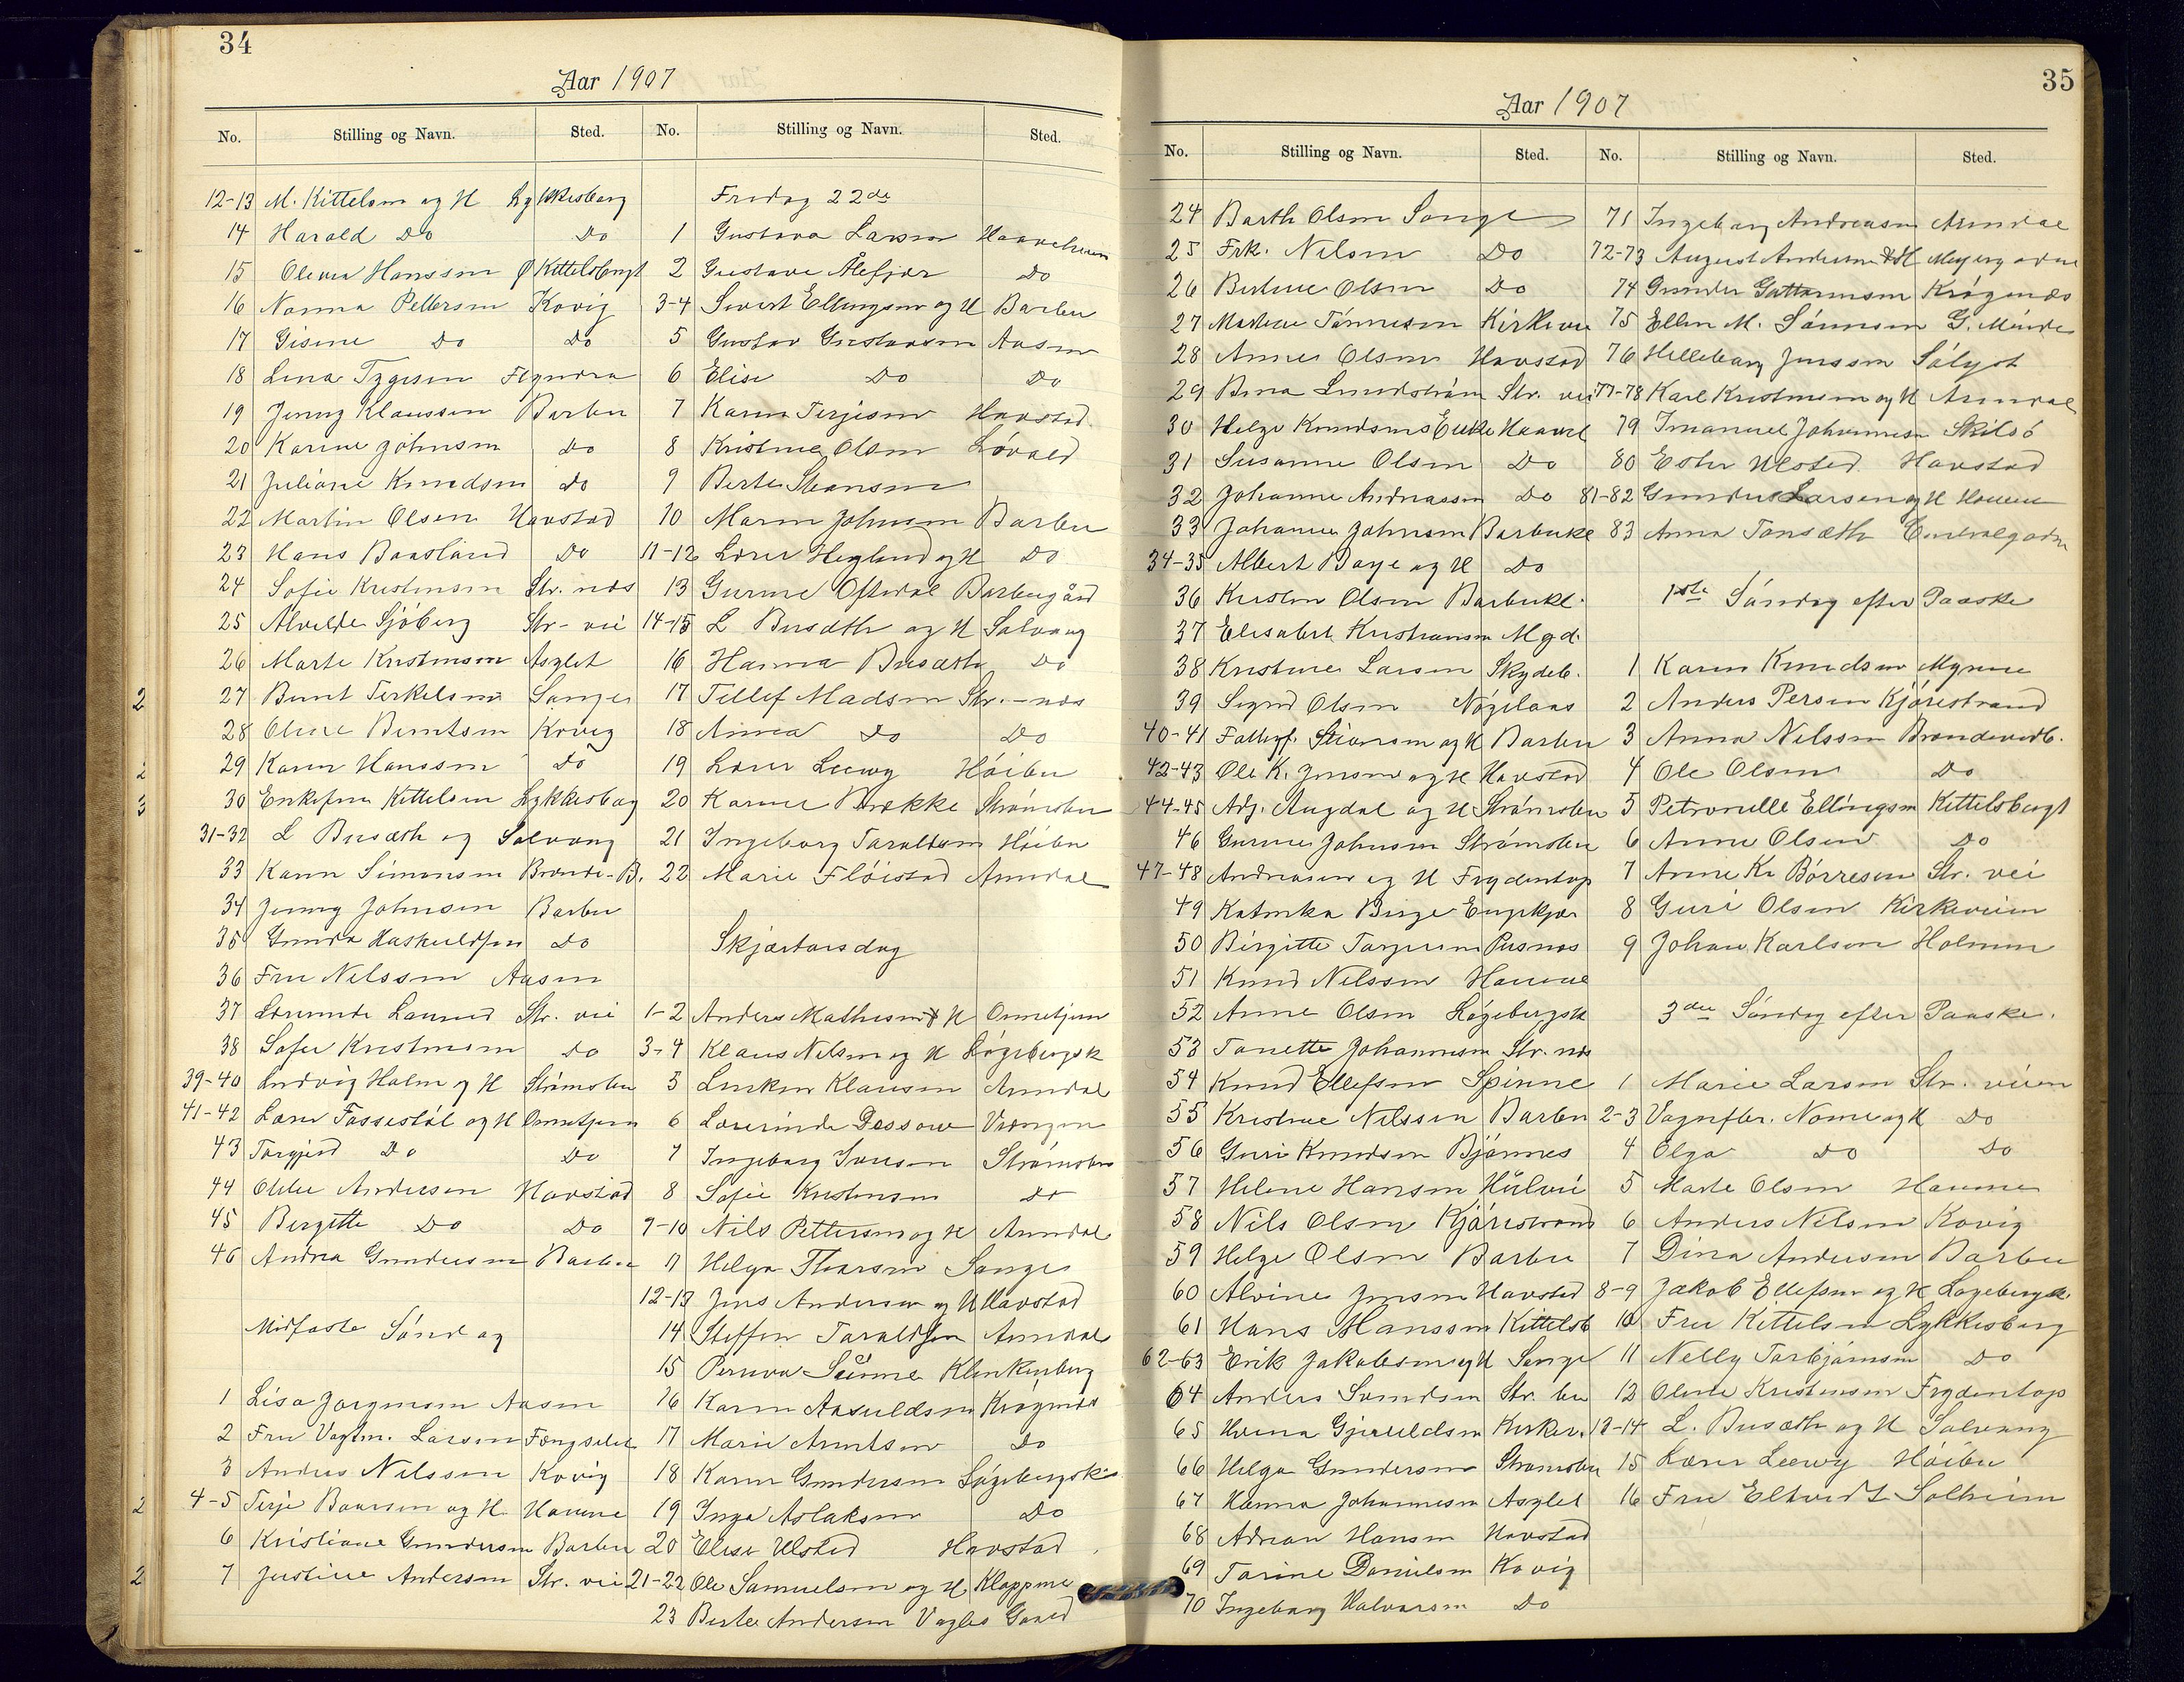 34
Aar 1907
No. Stilling og Navn. Sted. No. Stilling og Navn. Sted.
12-13 M. Kittelsen og H Lykkesborg
14 Harald Do Do
15 Olevia Hanssen Kittelsbugt
16 Nanna Pettersen Kovig
17 Gisine Do Do
18 Lina
19 Jenny Klaussen Barbu
20 Karine Johnsen Do
21 Juliane Knudsen Do
22 Martin Olsen Havstad
23 Hans Baasland Do
24 Sofie Kristensen Str. næs
25 Alvilde Sjöberg Str - vei
26 Marte Kristensen Asylet
27 Bernt Terkelsen Songe
28 Oline Berntsen Kovig
29 Karen Hanssen Do
30 Kittelsen Lykkesborg
31-32 L Busæth og Solvang
33 Karen Simonsen Brænde-B.
34 Jenny Johnsen Barbu
35 Gunda Do
36 Fru Nilssen Aasen
37 Str. vei
38 Sofie Kristensen Do
39-40 Ludvig Holm og H Strømsbu
41-42 Lærer Fossestøl og H
43 Torgjerd Do Do
44 Andersen Havstad
45 Birgitte Do Do
46 Andrea Gundersen Barbu
Midfaste Søndag
1 Lisa Jørgensen Aasen
2 Fru Vagtm. Larsen Fængselet
3 Anders Nilssen Kovig
4-5 Terje Baarsen og H. Havene
6 Kristiane Gundersen Barbu
7 Justine Andersen Str. vei
Fredag 22de
1 Gustava Larsen
2 Gustava Ålefjær Do
3-4 Sivert Ellingsen og H Barbu
5 Gustav Gustavsen Aasen
6 Elise Do Do
7 Karen Terjesen Havstad
8 Kristine Olsen Løvold
9 Berte Stiansen
10 Maren Johnsen Barbu
11-12 Lærer Heglund og H Do
13 Gurine Oftedal Barbugård
14-15 L Busæth og H Solvang
16 Hanna Busæth Do
17 Tellef Madsen Str. - næs
18 Anna Do Do
19 Lærer Leewy Høibu
20 Karine Brække Strømsbu
21 Ingeborg Taraldsen Høibu
22 Marie Fløistad Arendal
Skjærtorsdag
1-2 Anders Mathisen & H
3-4 Klaus Nilsen og H Løgebergsk
5 Klausen Arendal
6 Dessow
7 Ingeborg Strømsbu
8 Sofie Kristensen Do
9-10 Nils Pettersen og H Arendal
11 Helga Songe
12-13 Jens Andersen og H Havstad
14 Steffen Taraldsen Arendal
15 Klinkenberg
16 Karen Krøgenes
17 Marie Arntsen Do
18 Karen Gundersen Løgebergsk.
19 Inga Aslaksen Do
20 Elise Ulsted Havstad
21-22 Ole Samuelsen og H Kloppene
23 Berte Andersen
35
Aar 1907
No. Stilling og Navn. Sted. No. Stilling og Navn. Sted.
24 Barth Olsen Songe
25 Frk. Nilsen Do
26 Bertine Olsen Do
27 Martine Tønnesen Kirkevei
28 Anne Olsen Havstad
29 Bina Lundstrøm Str. vei
30 Helge Knudsens Enke
31 Susanne Olsen Do
32 Johanne Andreassen Do
33 Johanne Johnsen Barbukl
34-35 Albert Boye og H Do
36 Kirsten Olsen Barbukl.
37 Elisabet Kristiansen Mgd.
38 Kristine Larsen Skydeb.
39 Sigrid Olsen
40-41 Stiansen og H Barbu
42-43 Ole K. Jensen og H Havstad
44-45 Adj. Augdal og H Strømsbu
46 Gurine Johnsen Strømsbu
47-48 Andreasen og H Frydentop
49 Katinka Birge Engekjær
50 Birgitte Torjusen Pusnæs
51 Knud Nilssen Havene
52 Anne Olsen Løgebergsk
53 Tonette Johannesen Str. næs
54 Knud Ellefsen Spinne
55 Kristine Nilssen Barbu
56 Guri Knudsen Bjønnes
57 Helene Hansen
58 Nils Olsen Kjørrestrand
59 Helge Olsen Barbu
60 Alvine Jensen Havsted
61 Hans Hanssen Kittelsb
62-63 Erik Jakobsen og H Songe
64 Anders Svendsen Str. bu
65 Kirkev.
66 Helga Gundersen Strømsbu
67 Hanna Johannesen Asylet
68 Adrian Hansen Havstad
69 Tarine Danielsen Kovig
70 Ingeborg Halvorsen Do
71 Ingeborg Andreasen Arendal
72-73 August Andersen & H
74 Gunder Guttormsen Krøgenæs
75 Ellen M. Sønnsen
76 Jenssen Sølyst
77-78 Karl Kristensen og H Arendal
79 Imanuel Johannesen Skilsö
80 Ester Ulsted Havstad
81-82 Gunder Larsen og H Havene
83 Anna Tonsæth
1ste Søndag efter Paaske
1 Karen Knudsen Myrene
2 Anders Persen Kjørrestrand
3 Anna Nilssen Brændevedb.
4 Ole Olsen Do
5 Petronelle Ellingsen Kittelsbugt
6 Anne Olsen Do
7 Anne Kr Børresen Str. vei
8 Guri Olsen Kirkeveien
9 Johan Karlsen Holmen
3die Søndag efter Paaske.
1 Marie Larsen Str. veien
2-3 Vognfbr. Nome og H Do
4 Olga Do Do
5 Marte Olsen Havene
6 Anders Nilsen Kovig
7 Dina Andersen Barbu
8-9 Jakob Ellefsen og H Løgebergsk
10 Fru Kittelsen Lykkesborg
11 Nelly Torbjørnsen Do
12 Oline Kristensen Frydentop
13-14 L. Busæth og H Solvang
15 Lærer Leewy Høibu
16 Fru Eltvedt Solheim